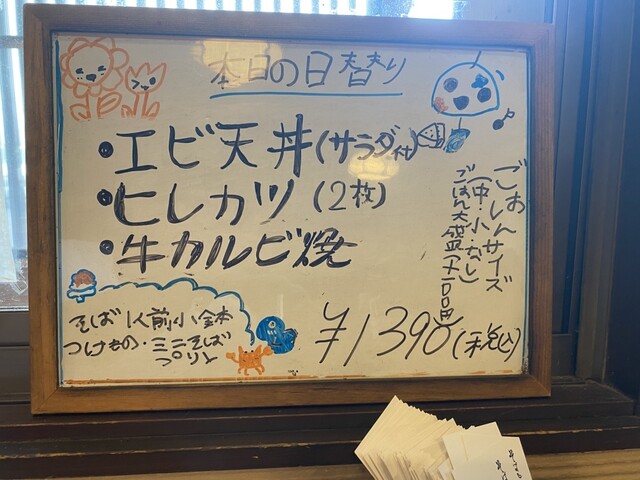 本日の日替り
・エビ天丼(サラダ付)
・ヒレカツ(2枚)
・牛カルビ焼
ごはんサイズ
(中・小・なし)
ごはん大盛(+100円)
そば1人前小鉢
つけもの・ミニそば
プリン
¥1390(税込)